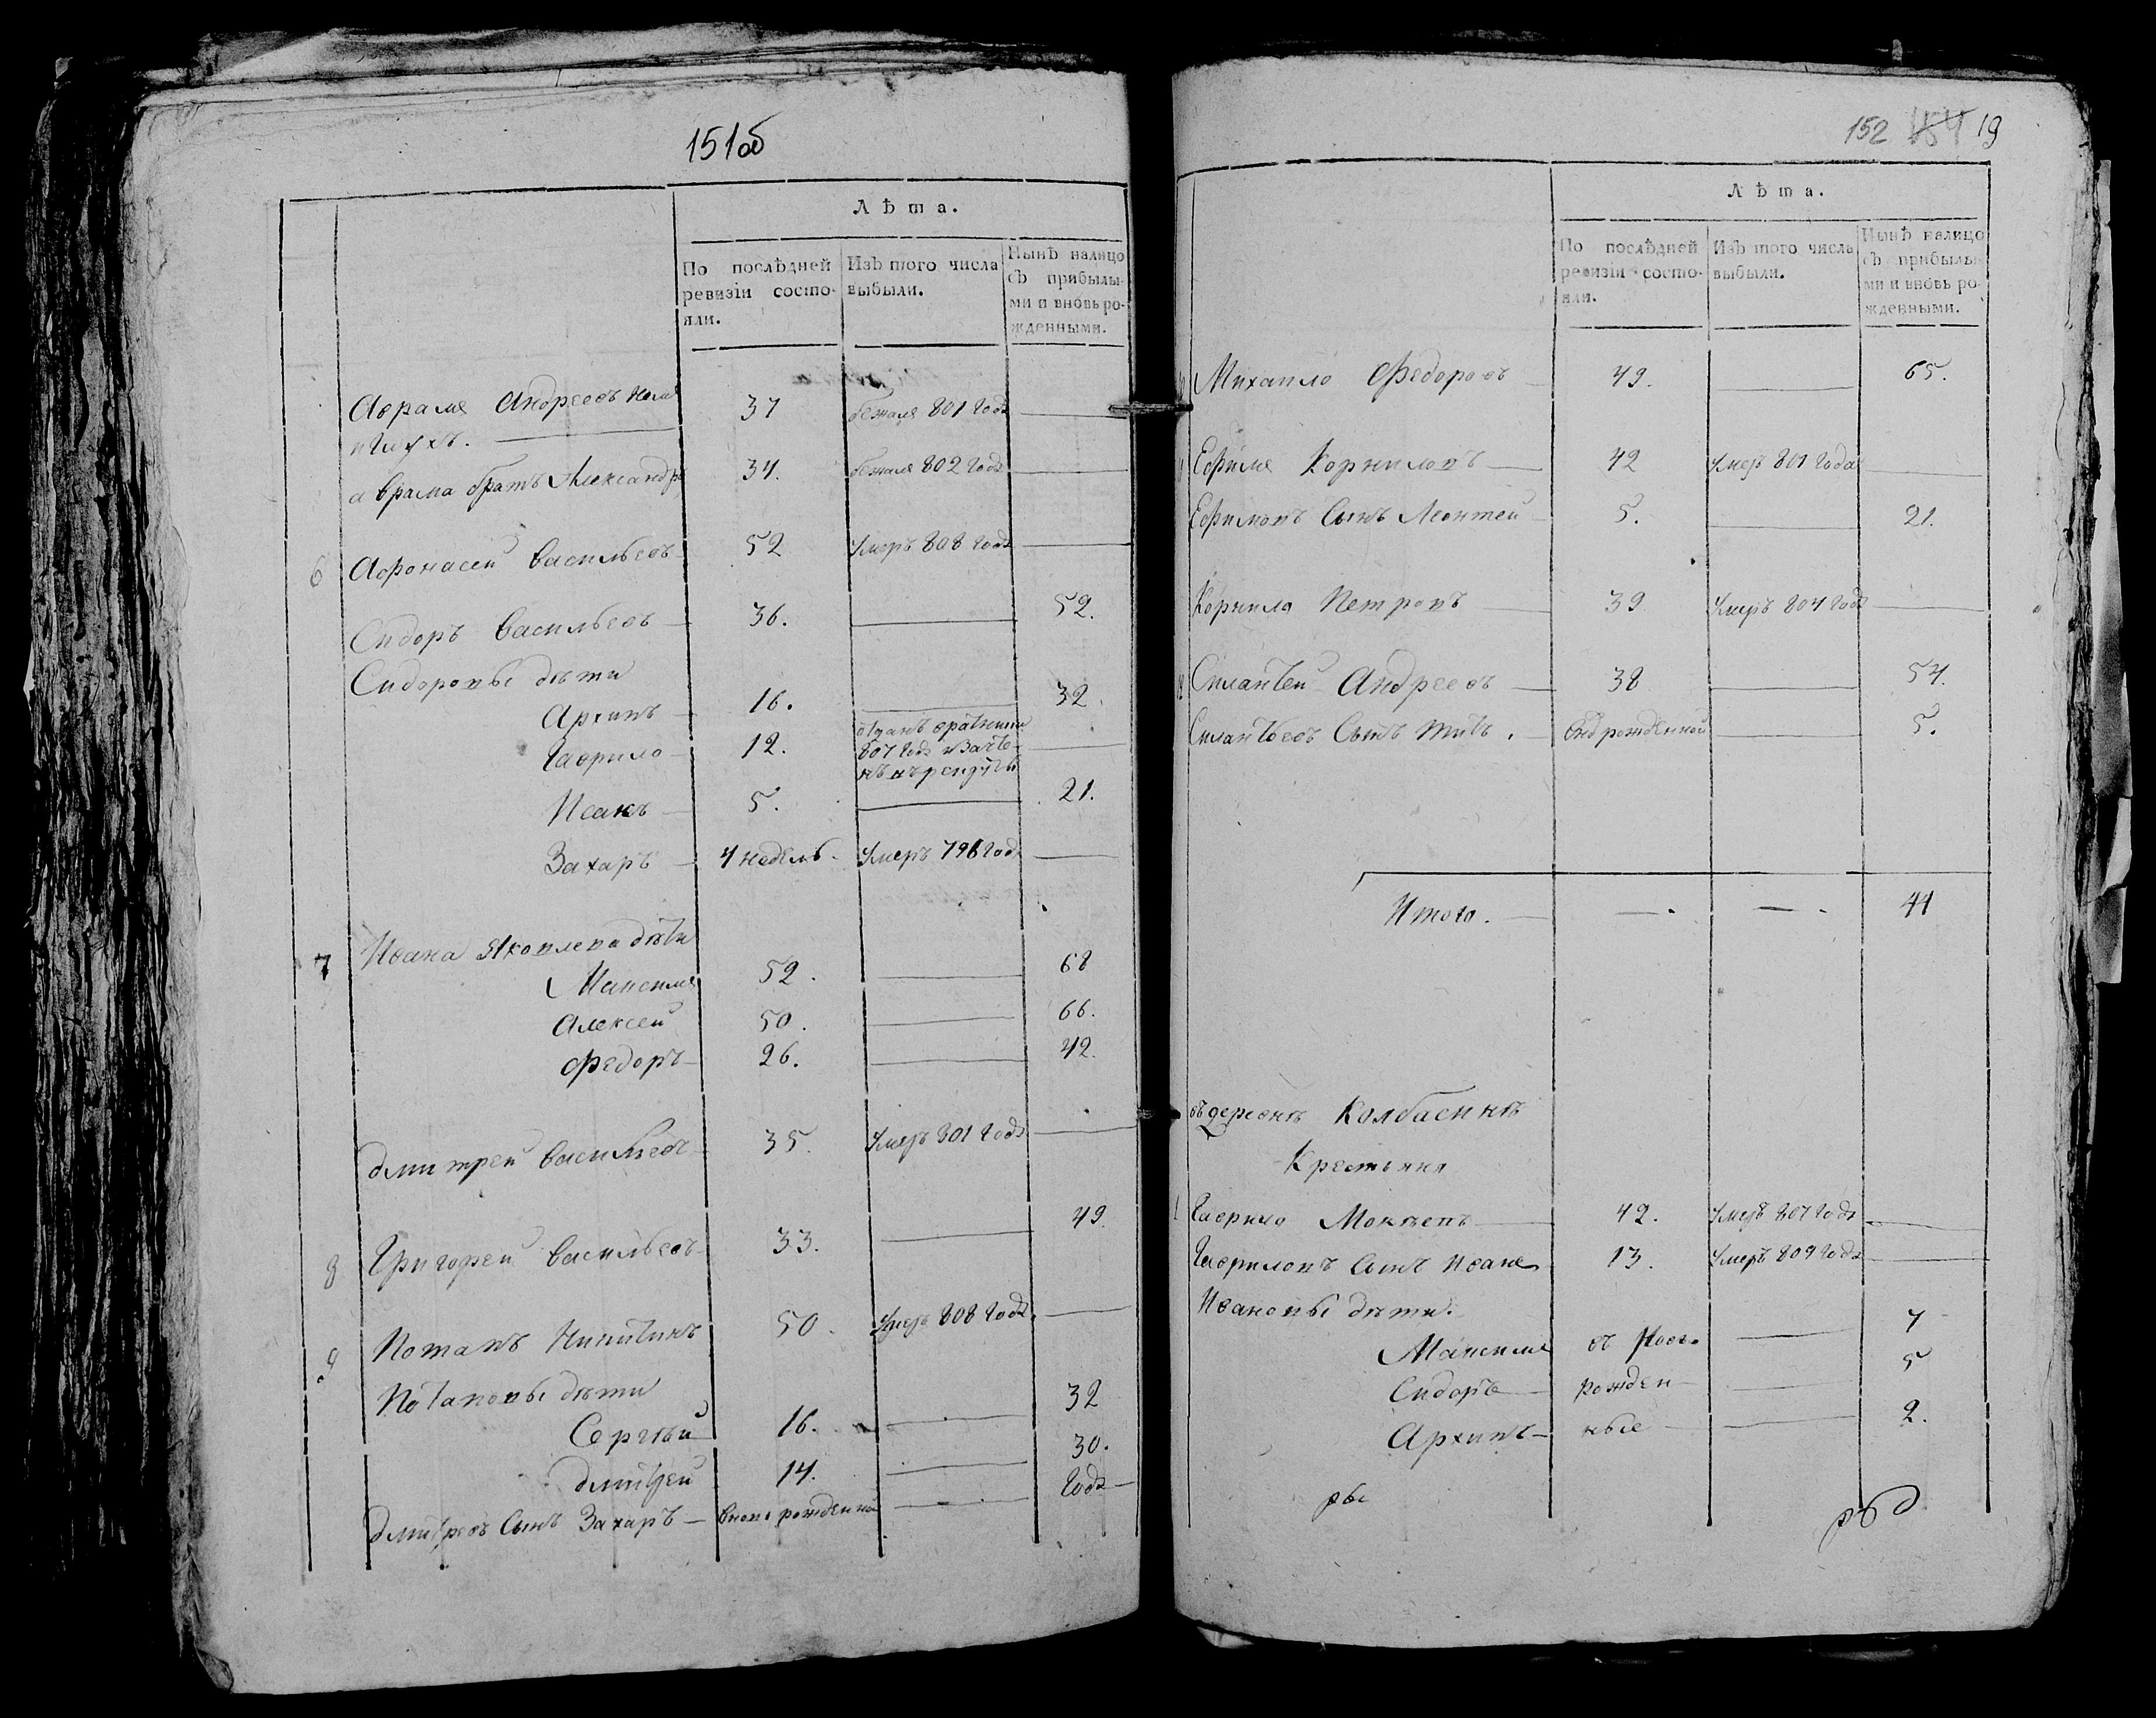 151об
Лѣта.
По послѣдней ревизіи состояли.
Изъ того числа выбыли.
Нынѣ налицо съ прибылыми и вновь рожденными.
Аврамъ Андреевъ
37 бежалъ 801 года
аврама братъ Александръ 34. бежалъ 802 года
6 Афонасей Васильевъ 52 умеръ 808 года
Сидоръ Васильевъ 36. 52.
Сидоровы дѣти
Архипъ 16. 32.
Гаврило 12. отданъ 807 года
Исакъ 5. 21.
Захаръ 4 недель умеръ 796 года
7 Ивана Яковлева дѣти
Максимъ 52. 68
Алексей 50. 66.
Федоръ 26. 42.
Дмитрей Васильевъ 35. умеръ 801 года
8 Григорей Васильевъ 33. 49.
9 Потапъ Никитинъ 50. умеръ 808 года
Потаповы дѣти
Сергѣй 16. 32
Дмитрей 14. 30.
Дмитревъ сынъ Захаръ вновь рожденной года
152 19
Лѣта.
По послѣдней ревизіи состояли.
Изъ того числа выбыли.
Нынѣ налицо съ прибылыми и вновь рожденными.
Михаило Федоровъ 49. 65.
Ефимъ Корниловъ 42 умеръ 801 года
Ефимовъ сынъ Леонтей 5. 21.
Корнило Петровъ 39 умеръ 804 года
Силантей Андреевъ 38 54.
Силантьевъ сынъ Титъ. рожденной 5.
Итого. 44
въ деревнѣ Колбасинѣ
Крестьяня
1 Гаврило Мокѣевъ 42. умеръ 807 года
Гавриловъ сынъ Иванъ 13. умеръ 809 года
Ивановы дѣти.
Максимъ въ новь 7
Сидоръ рожден 5
Архипъ ные 2.